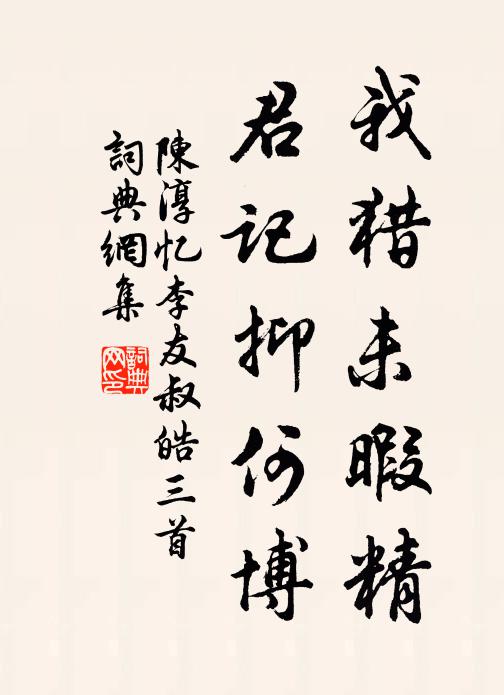 我猎未暇精
君记抑何博
陳淳忆李友叔皓三首
詞典網集
詞典網印